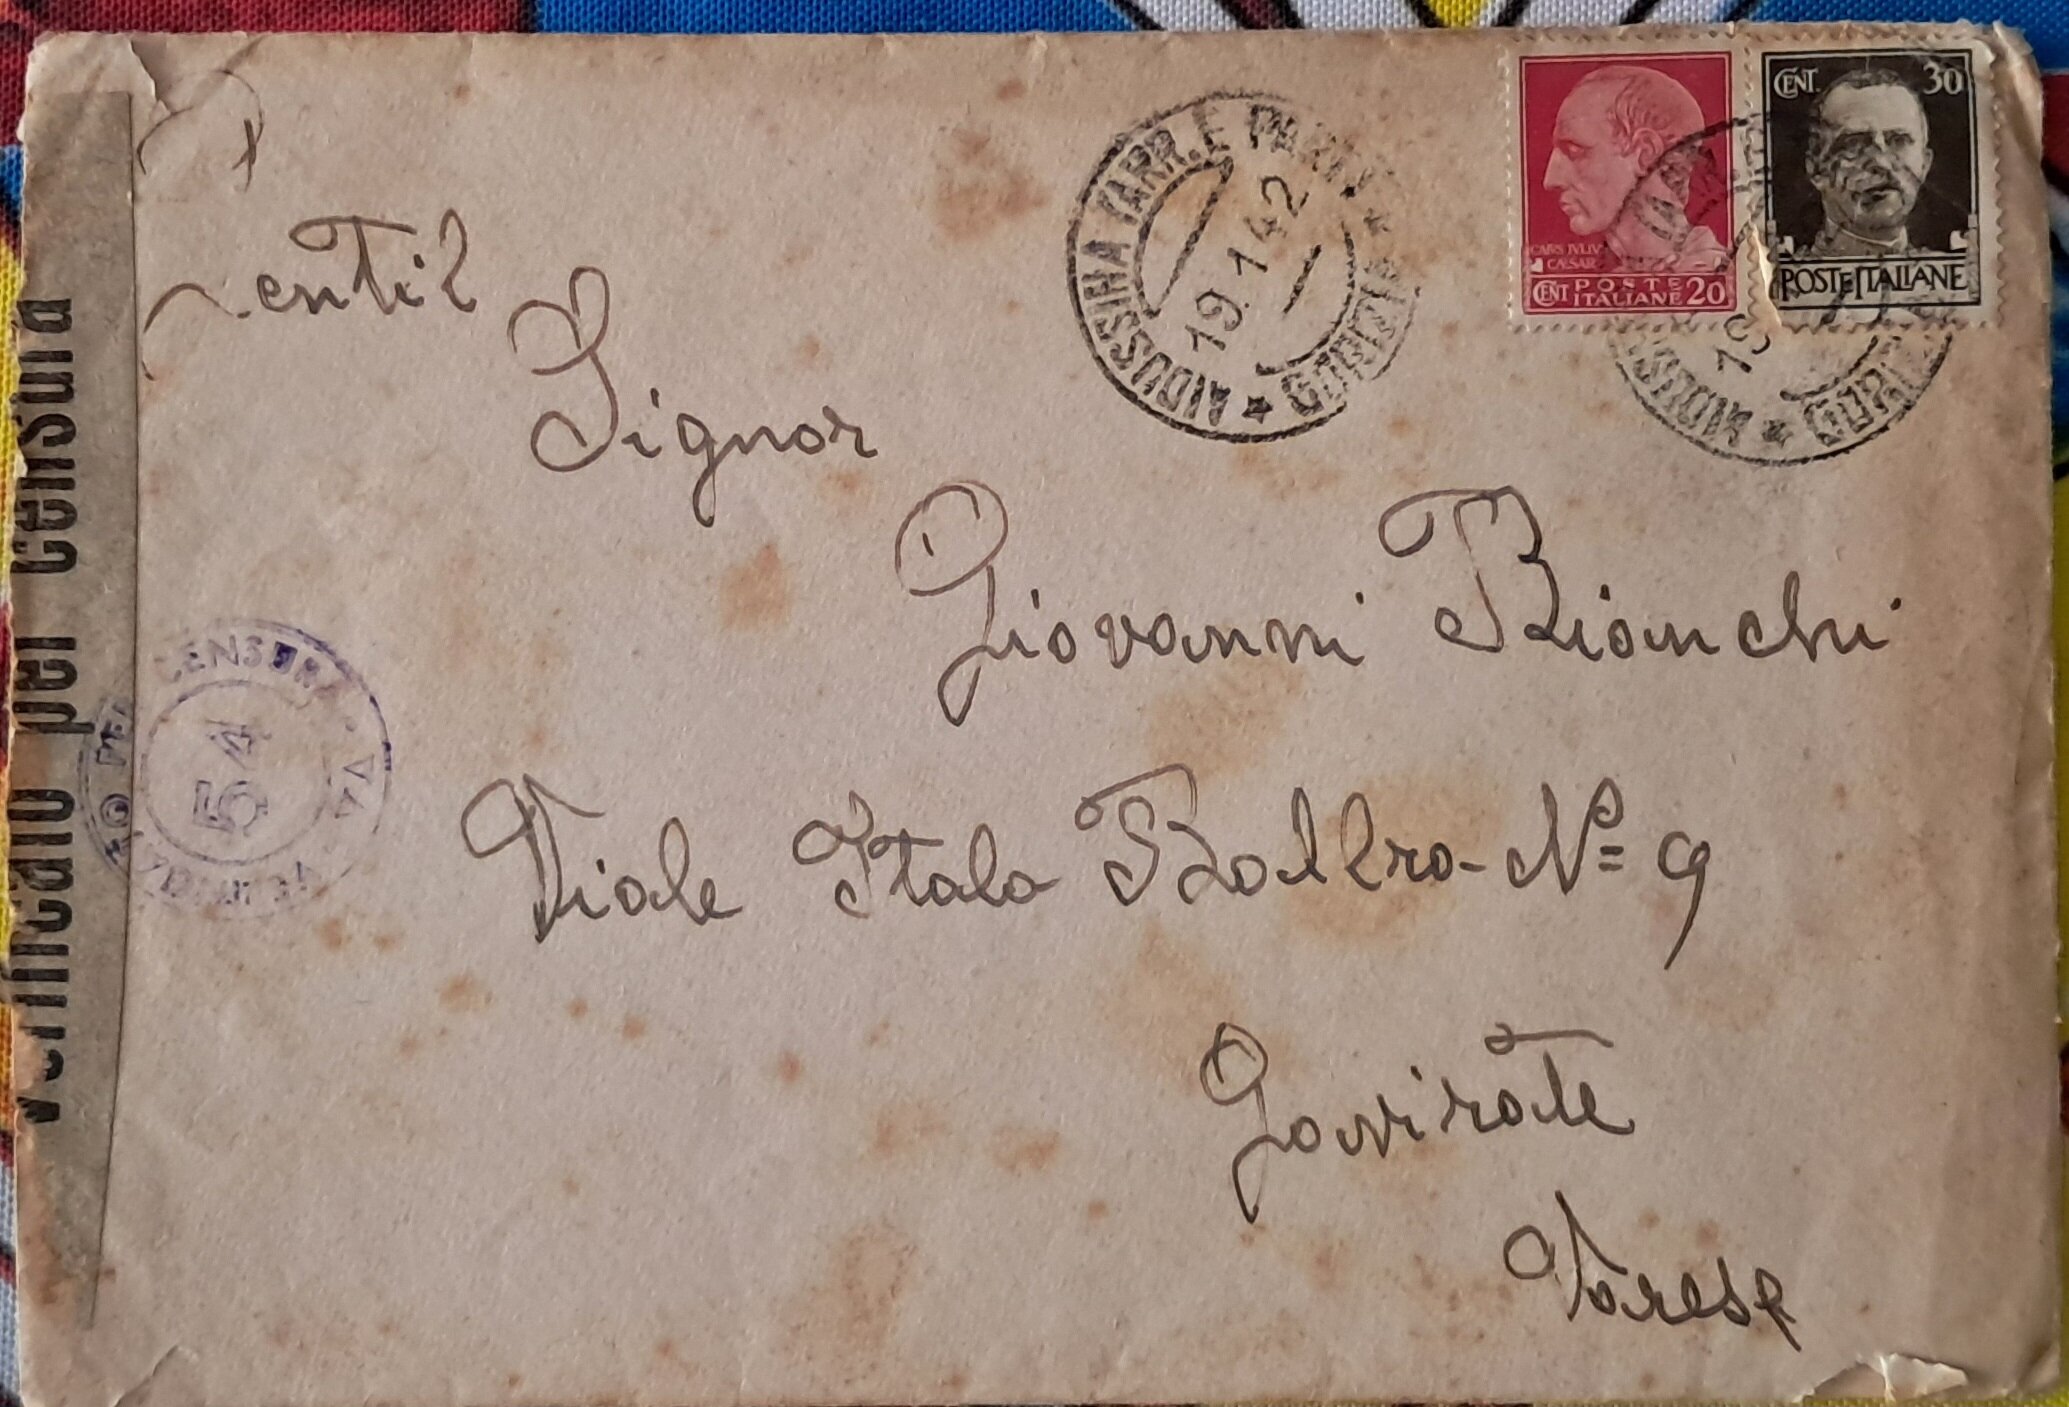 Verificato per censura
CENSURA
54
AIDUSSINA (ARR. E PART.)
19.1.42
GORIZIA
CENT. 30
POSTE ITALIANE
CAIVS IVLIV
CAESAR
CENT POSTE ITALIANE 20
19
GORI
Gentil
Signor
Giovanni Bianchi
Viale Italo Balbo - N° 9
Gavirate
Varese